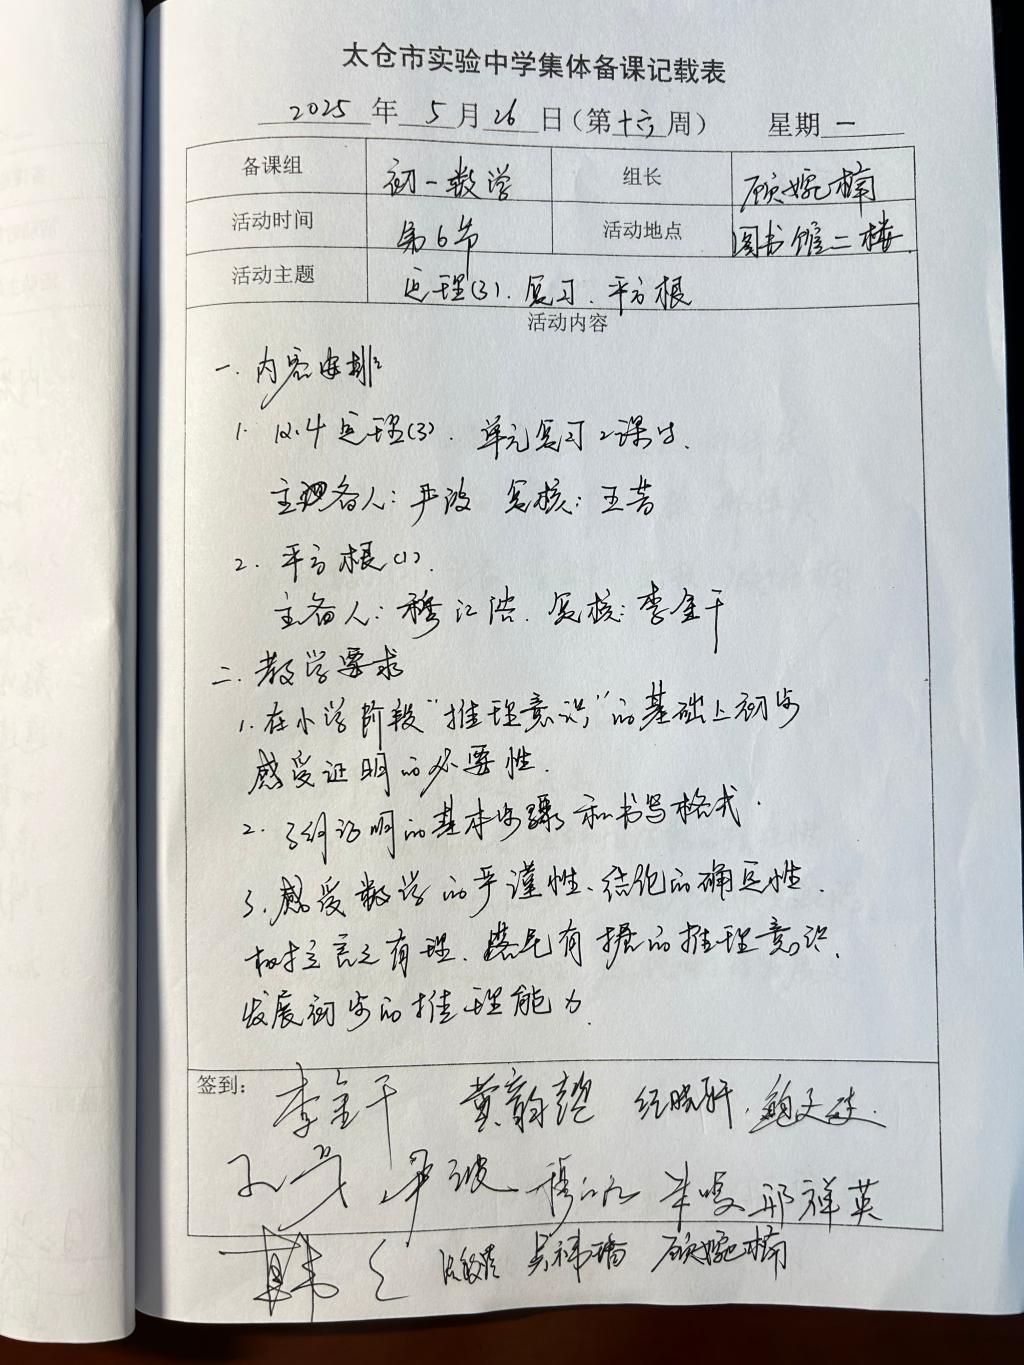 太仓市实验中学集体备课记载表
2025年5月26日（第十六周） 星期一
备课组 初一数学 组长 顾婉楠
活动时间 第6节 活动地点 图书馆二楼
活动主题 定理(3)、复习、平方根
活动内容
一.内容安排
1. 12.4 定理(3). 单元复习2课时.
主备人：严波 复核：王芳
2. 平方根(1).
主备人：穆江浩. 复核：李金干
二.教学要求
1.在小学阶段“推理意识”的基础上初步
感受证明的必要性.
2. 了解证明的基本步骤和书写格式.
3.感受数学的严谨性、结论的确定性.
树立言之有理、落笔有据的推理意识.
发展初步的推理能力.
签到：李金干 黄韵懿
严波 邢祥英
韩 顾婉楠